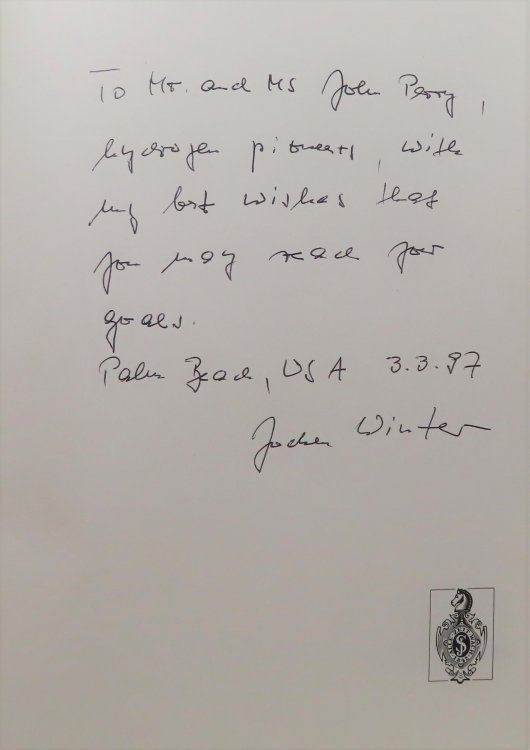 To Mr. and Ms John Perry,
hydrogen pioneers, with
my best wishes that
you may reach your
goals.
Palm Beach, USA 3.3.97
Jochen Winter